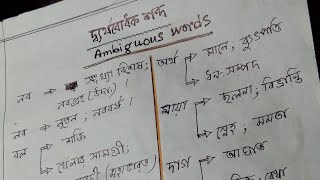 দ্ব্যর্থবোধক শব্দ
Ambiguous words
নব → সংখ্যা বিশেষ;
নবগ্রহ
নব → নূতন; নববর্ষ।
বল → শক্তি
→ খেলার সামগ্রী
অর্থ → মানে; ব্যুৎপত্তি
→ ধন-সম্পদ
মায়া → ছলনা; বিভ্রান্তি
→ স্নেহ; মমতা
দাগ → আঘাত